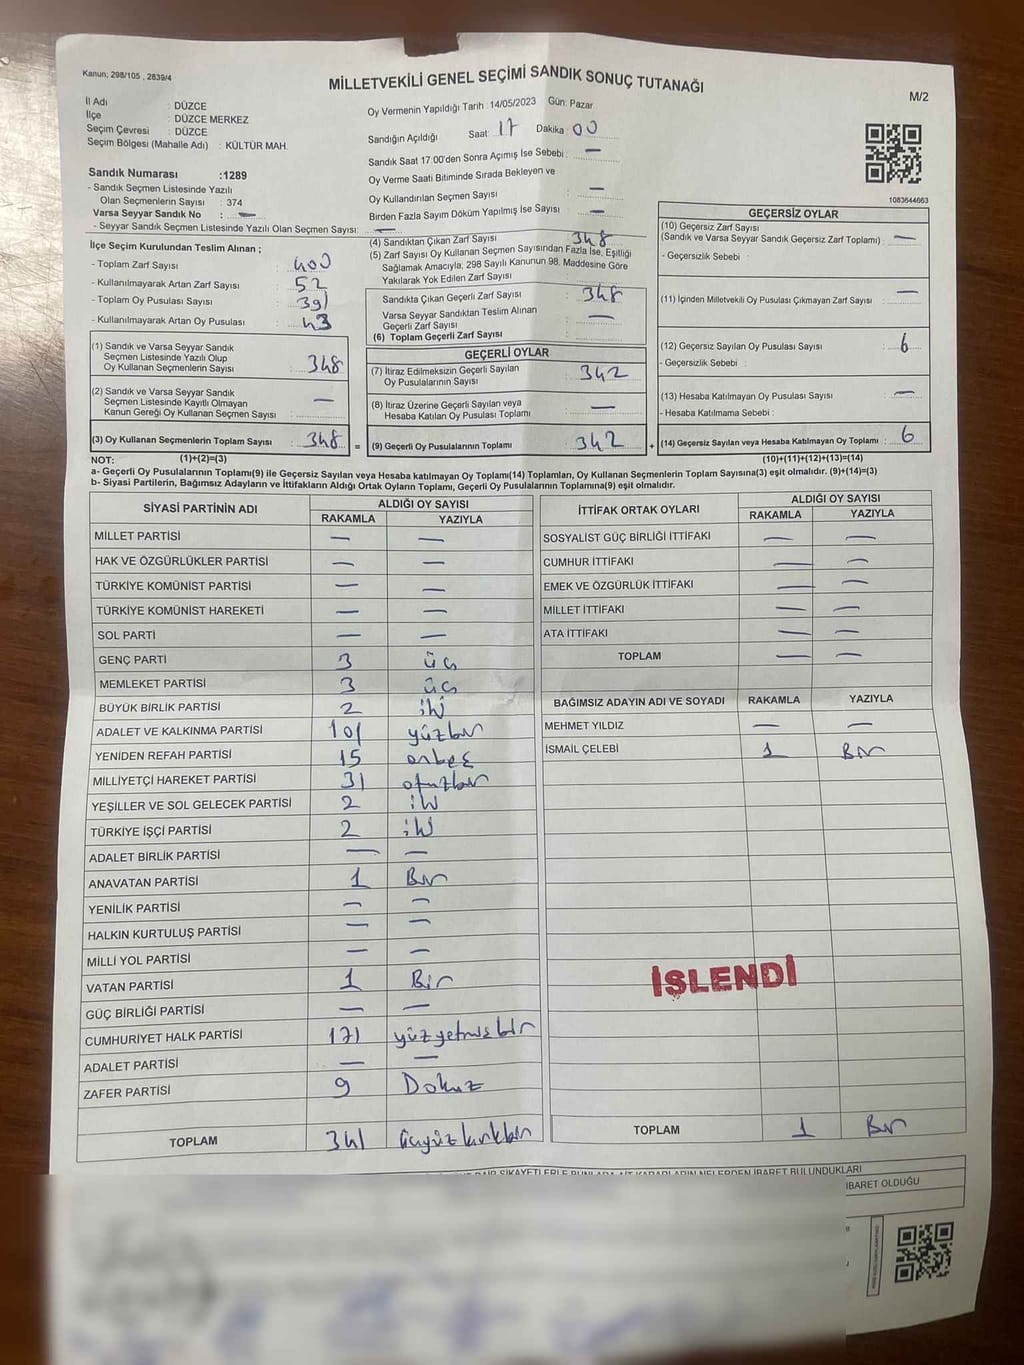 Kanun; 298/105 , 2839/4
MİLLETVEKİLİ GENEL SEÇİMİ SANDIK SONUÇ TUTANAĞI
M/2
İl Adı : DÜZCE
İlçe : DÜZCE MERKEZ
Seçim Çevresi : DÜZCE
Seçim Bölgesi (Mahalle Adı) : KÜLTÜR MAH.
Oy Vermenin Yapıldığı Tarih : 14/05/2023 Gün: Pazar
Sandığın Açıldığı Saat: 17 Dakika: 00
Sandık Saat 17:00'den Sonra Açımış İse Sebebi : —
Oy Verme Saati Bitiminde Sırada Bekleyen ve
Oy Kullandırılan Seçmen Sayısı : —
Birden Fazla Sayım Döküm Yapılmış İse Sayısı : —
1083644663
Sandık Numarası :1289
- Sandık Seçmen Listesinde Yazılı
Olan Seçmenlerin Sayısı : 374
Varsa Seyyar Sandık No : —
- Seyyar Sandık Seçmen Listesinde Yazılı Olan Seçmen Sayısı: —
İlçe Seçim Kurulundan Teslim Alınan ;
- Toplam Zarf Sayısı : 400
- Kullanılmayarak Artan Zarf Sayısı : 52
- Toplam Oy Pusulası Sayısı : 391
- Kullanılmayarak Artan Oy Pusulası : 43
(1) Sandık ve Varsa Seyyar Sandık
Seçmen Listesinde Yazılı Olup
Oy Kullanan Seçmenlerin Sayısı : 348
(2) Sandık ve Varsa Seyyar Sandık
Seçmen Listesinde Kayıtlı Olmayan
Kanun Gereği Oy Kullanan Seçmen Sayısı : —
(3) Oy Kullanan Seçmenlerin Toplam Sayısı : 348 =
(4) Sandıktan Çıkan Zarf Sayısı : 348
(5) Zarf Sayısı Oy Kullanan Seçmen Sayısından Fazla İse, Eşitliği
Sağlamak Amacıyla; 298 Sayılı Kanunun 98. Maddesine Göre
Yakılarak Yok Edilen Zarf Sayısı :
Sandıkta Çıkan Geçerli Zarf Sayısı : 348
Varsa Seyyar Sandıktan Teslim Alınan
Geçerli Zarf Sayısı : —
(6) Toplam Geçerli Zarf Sayısı :
GEÇERLİ OYLAR
(7) İtiraz Edilmeksizin Geçerli Sayılan
Oy Pusulalarının Sayısı : 342
(8) İtiraz Üzerine Geçerli Sayılan veya
Hesaba Katılan Oy Pusulası Toplamı : —
(9) Geçerli Oy Pusulalarının Toplamı : 342 +
GEÇERSİZ OYLAR
(10) Geçersiz Zarf Sayısı
(Sandık ve Varsa Seyyar Sandık Geçersiz Zarf Toplamı) : —
- Geçersizlik Sebebi :
(11) İçinden Milletvekili Oy Pusulası Çıkmayan Zarf Sayısı : —
(12) Geçersiz Sayılan Oy Pusulası Sayısı : 6
- Geçersizlik Sebebi :
(13) Hesaba Katılmayan Oy Pusulası Sayısı : —
- Hesaba Katılmama Sebebi :
(14) Geçersiz Sayılan veya Hesaba Katılmayan Oy Toplamı : 6
NOT: (1)+(2)=(3) (10)+(11)+(12)+(13)=(14)
a- Geçerli Oy Pusulalarının Toplamı(9) ile Geçersiz Sayılan veya Hesaba katılmayan Oy Toplamı(14) Toplamları, Oy Kullanan Seçmenlerin Toplam Sayısına(3) eşit olmalıdır. (9)+(14)=(3)
b- Siyasi Partilerin, Bağımsız Adayların ve İttifakların Aldığı Ortak Oyların Toplamı, Geçerli Oy Pusulalarının Toplamına(9) eşit olmalıdır.
SİYASİ PARTİNİN ADI ALDIĞI OY SAYISI
RAKAMLA YAZIYLA
MİLLET PARTİSİ — —
HAK VE ÖZGÜRLÜKLER PARTİSİ — —
TÜRKİYE KOMÜNİST PARTİSİ — —
TÜRKİYE KOMÜNİST HAREKETİ — —
SOL PARTİ — —
GENÇ PARTİ 3 üç
MEMLEKET PARTİSİ 3 üç
BÜYÜK BİRLİK PARTİSİ 2 iki
ADALET VE KALKINMA PARTİSİ 101 yüzbir
YENİDEN REFAH PARTİSİ 15 onbeş
MİLLİYETÇİ HAREKET PARTİSİ 31 otuzbir
YEŞİLLER VE SOL GELECEK PARTİSİ 2 iki
TÜRKİYE İŞÇİ PARTİSİ 2 iki
ADALET BİRLİK PARTİSİ — —
ANAVATAN PARTİSİ 1 Bir
YENİLİK PARTİSİ — —
HALKIN KURTULUŞ PARTİSİ — —
MİLLİ YOL PARTİSİ — —
VATAN PARTİSİ 1 Bir
GÜÇ BİRLİĞİ PARTİSİ — —
CUMHURİYET HALK PARTİSİ 171 yüzyetmişbir
ADALET PARTİSİ — —
ZAFER PARTİSİ 9 Dokuz
TOPLAM 341 üçyüzkırkbir
İTTİFAK ORTAK OYLARI ALDIĞI OY SAYISI
RAKAMLA YAZIYLA
SOSYALİST GÜÇ BİRLİĞİ İTTİFAKI — —
CUMHUR İTTİFAKI — —
EMEK VE ÖZGÜRLÜK İTTİFAKI — —
MİLLET İTTİFAKI — —
ATA İTTİFAKI — —
TOPLAM — —
BAĞIMSIZ ADAYIN ADI VE SOYADI RAKAMLA YAZIYLA
MEHMET YILDIZ — —
İSMAİL ÇELEBİ 1 Bir
İŞLENDİ
TOPLAM 1 Bir
DAİR ŞİKAYETLERLE BUNLARA AİT KARARLARIN NELERDEN İBARET BULUNDUKLARI
İBARET OLDUĞU